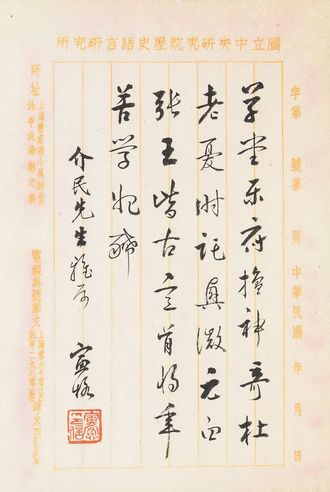 國立中央研究院歷史語言研究所
字第 號第 頁 中華民國 年 月 日
草堂樂府擅神奇杜
老憂時託興微元白
張王皆古意肯將辛
苦學妃豨
介民先生雅屬
寅恪
所址
上海曹家渡小萬柳堂
北平北海靜心齋
電報掛號華文